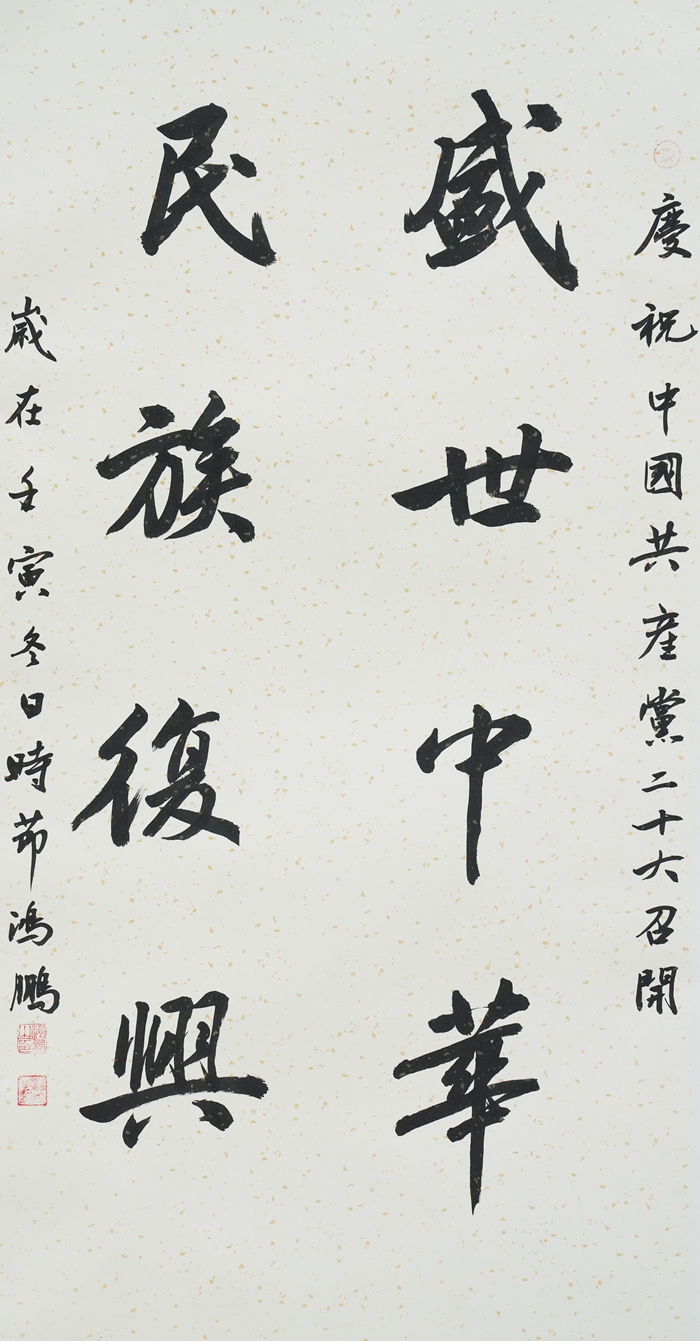 慶祝中國共產黨二十大召開
盛世中華
民族復興
歲在壬寅冬日時節鴻鵬